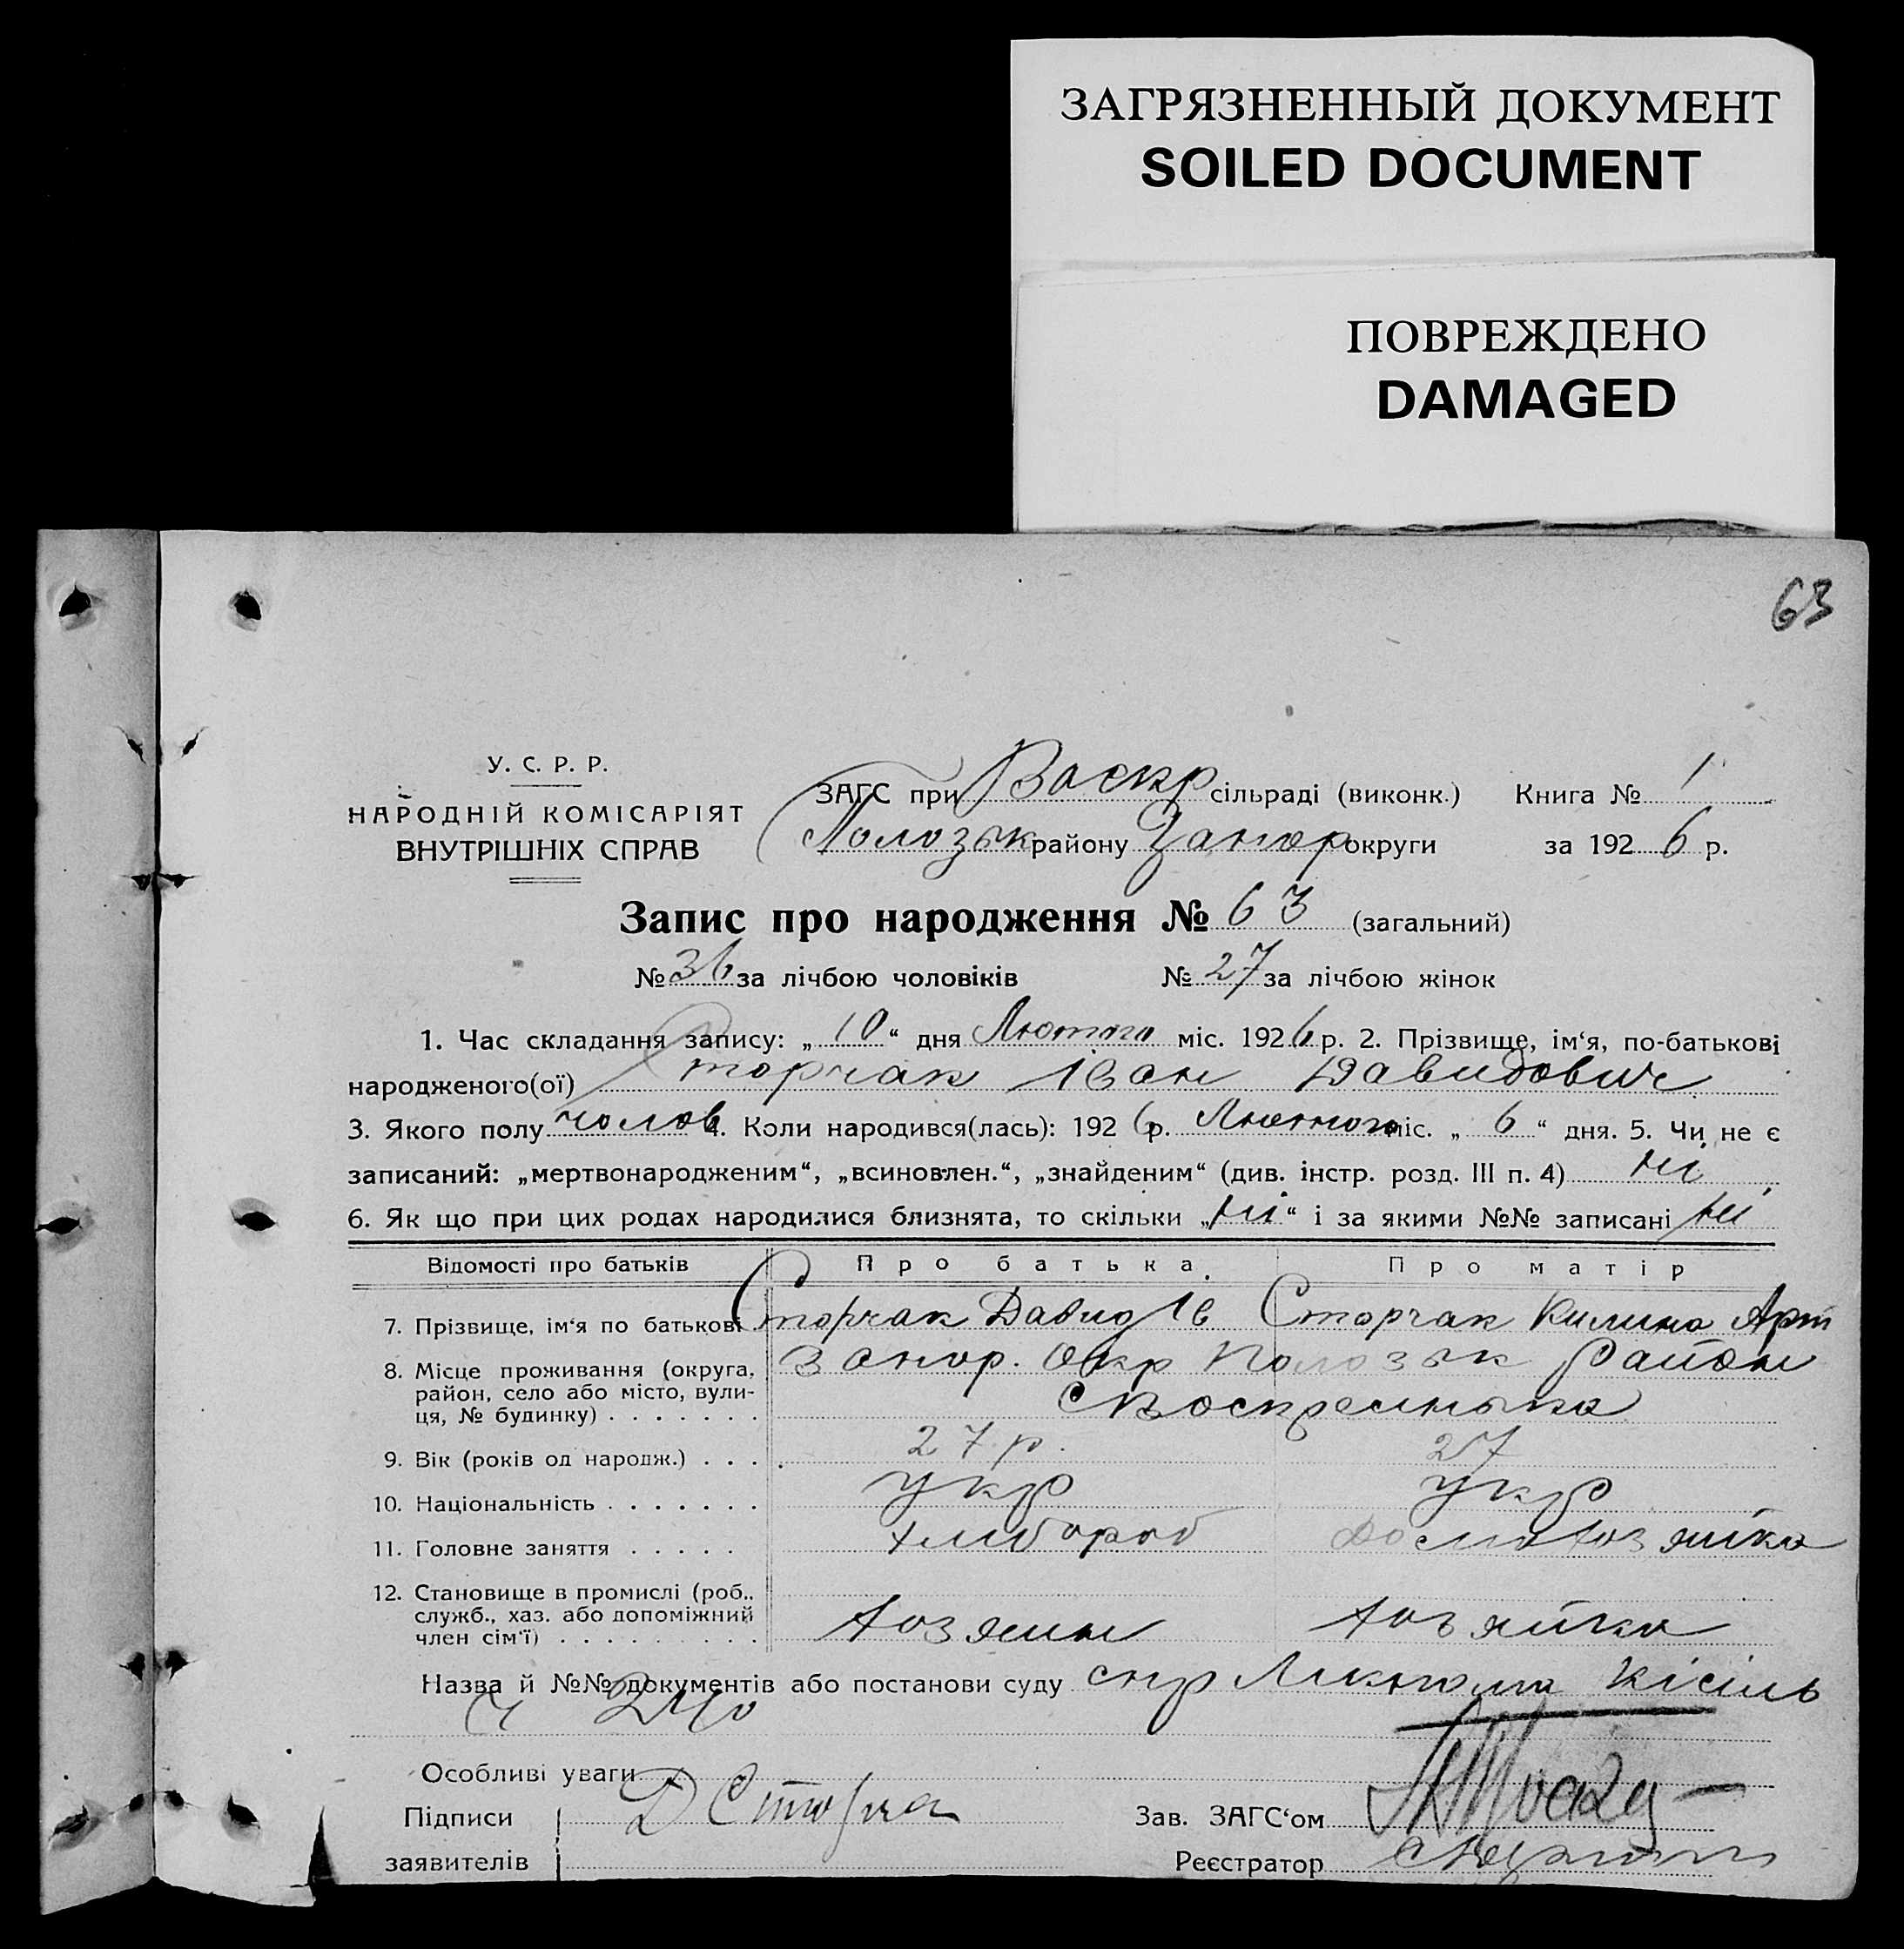 ЗАГРЯЗНЕННЫЙ ДОКУМЕНТ
SOILED DOCUMENT
ПОВРЕЖДЕНО
DAMAGED
63
У. С. Р. Р.
НАРОДНІЙ КОМІСАРІЯТ
ВНУТРІШНІХ СПРАВ
ЗАГС при Васкр сільраді (виконк.) Книга № 1
Полозьк району Запор округи за 1926 р.
Запис про народження № 63 (загальний)
№ 36 за лічбою чоловіків № 27 за лічбою жінок
1. Час складання запису: „ 10 “ дня Лютого міс. 1926 р. 2. Прізвище, ім‘я, по-батькові
народженого(ої) Сторчак Іван Давидович
3. Якого полу чолов 4. Коли народився(лась): 1926 р. Лютого міс. „ 6 “ дня. 5. Чи не є
записаний: „мертвонародженим“, „всиновлен.“, „знайденим“ (див. інстр. розд. III п. 4) ні
6. Як що при цих родах народилися близнята, то скільки „ні“ і за якими №№ записані ні
Відомості про батьків Про батька Про матір
7. Прізвище, ім‘я по батькові Сторчак Давид Ів Сторчак Килина Арт
8. Місце проживання (округа, район, село або місто, вулиця, № будинку) . . . . . . . Запор. Окр Полозьк Район
С Воскресенька
9. Вік (років од народж.) . . . . 27 р. 27
10. Національність . . . . . . . укр укр
11. Головне заняття . . . . . хлибороб домохозяйка
12. Становище в промислі (роб., служб., хаз. або допоміжний член сім‘ї) . . . . . . . . . хозяин хозяйка
Назва й №№ документів або постанови суду спр Кісіль
Особливі уваги
Підписи Д Сторча Зав. ЗАГС‘ом
заявителів Реєстратор